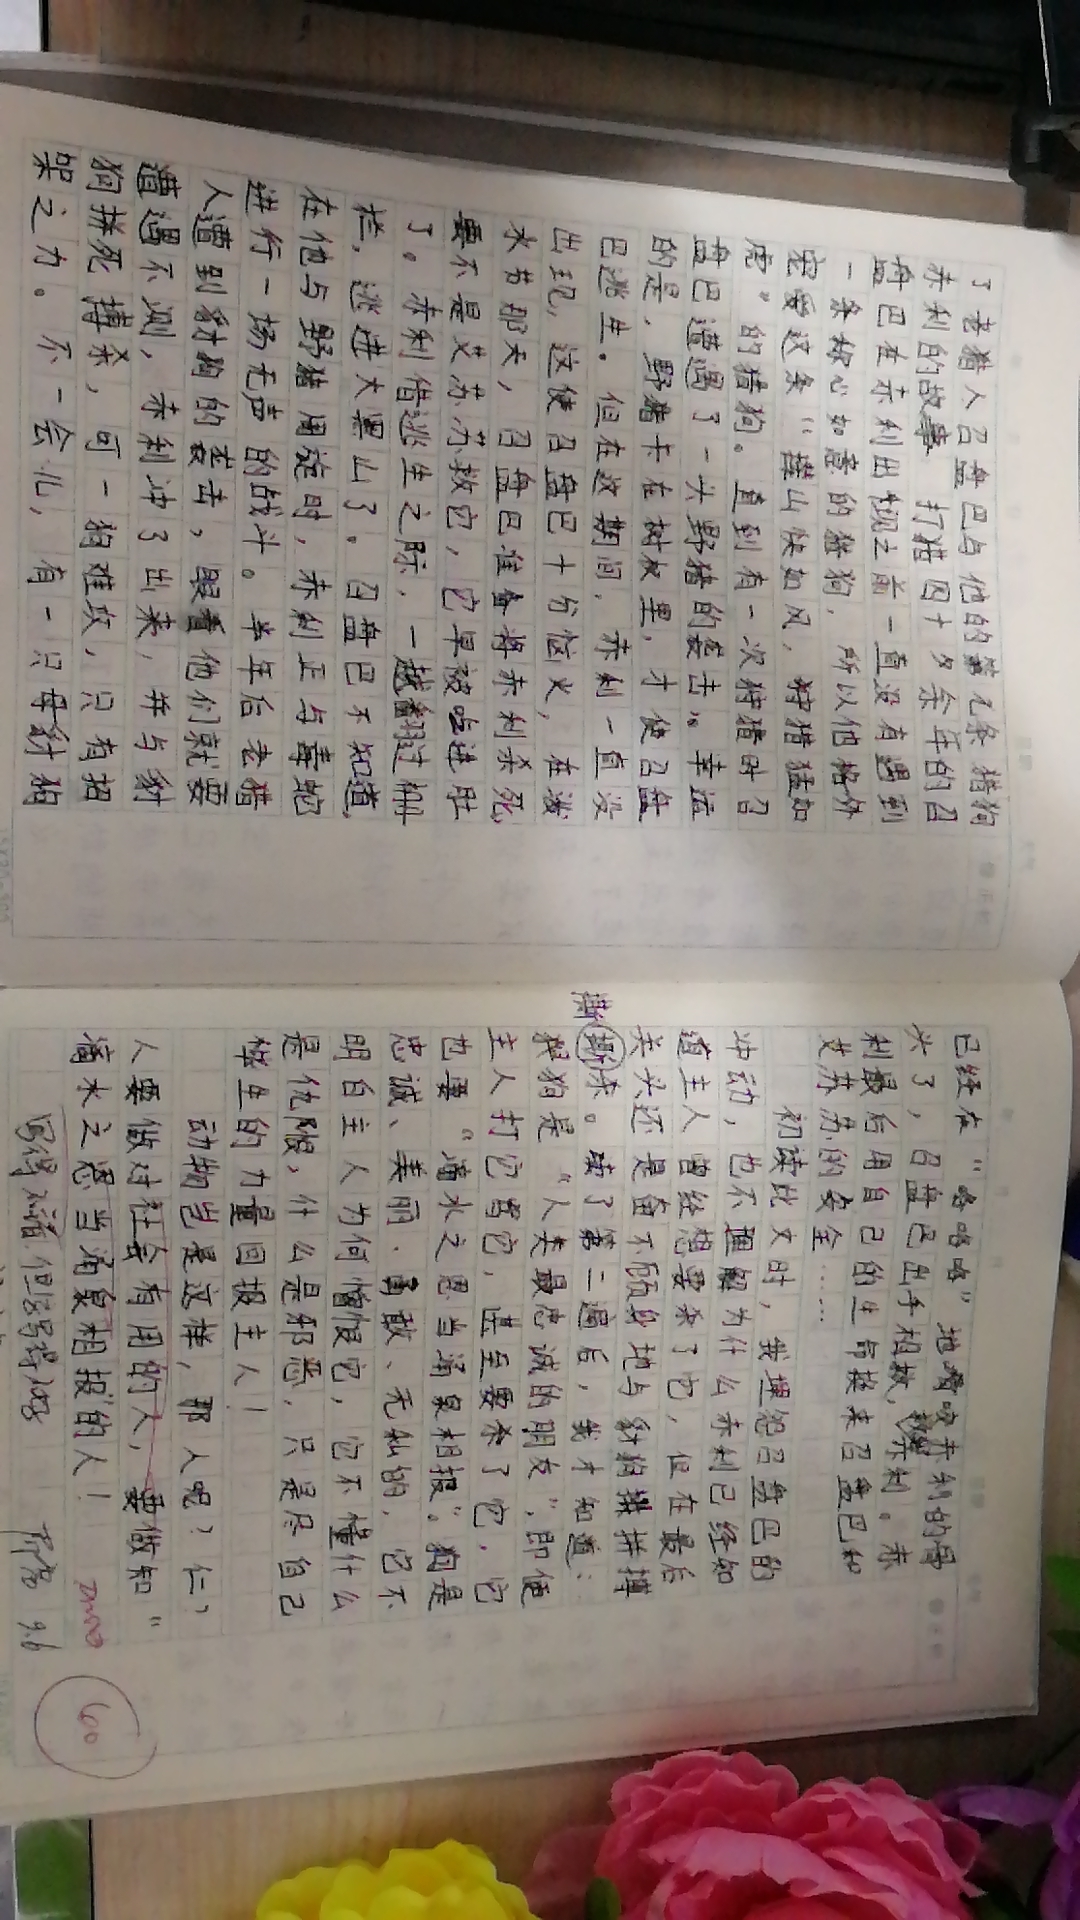 了老猎人召盘巴与他的第九条猎狗
赤利的故事。打猎四十多余年的召
盘巴在赤利出现之前一直没有遇到
一条称心如意的猎狗，所以他格外
宠爱这条“撵山快如风，狩猎猛如
虎”的猎狗。直到有一次狩猎时召
盘巴遭遇了一头野猪的袭击。幸运
的是，野猪卡在树杈里，才使召盘
巴逃生。但在这期间，赤利一直没
出现，这使召盘巴十分恼火，在泼
水节那天，召盘巴准备将赤利杀死，
要不是艾苏苏救它，它早被吃进肚
了。赤利借逃生之际，一越翻过栅
栏，逃进大黑山了。召盘巴不知道，
在他与野猪周旋时，赤利正与毒蛇
进行一场无声的战斗。半年后老猎
人遭到豺狗的袭击，眼看他们就要
遭遇不测，赤利冲了出来，并与豺
狗拼死搏杀，可一狗难攻，只有招
架之力。不一会儿，有一只母豺狗
已经在“咯咯咯”地嚼咬赤利的骨
头了，召盘巴出手相救，赤利。赤
利最后用自己的生命换来召盘巴和
艾苏苏的安全……
初读此文时，我埋怨召盘巴的
冲动，也不理解为什么赤利已经知
道主人曾经想要杀了它，但在最后
关头还是奋不顾身地与豺狗拼搏
撕
斯杀。读了第二遍后，我才知道：
猎狗是“人类最忠诚的朋友”，即使
主人打它骂它，甚至要杀了它，它
也要“滴水之恩当涌泉相报”。狗是
忠诚、美丽、勇敢、无私的，它不
明白主人为何憎恨它，它不懂什么
是仇恨，什么是邪恶，只是尽自己
毕生的力量回报主人！
动物岂是这样，那人呢？仁？
人要做对社会有用的人，要做知“
滴水之恩当涌泉相报”的人！
写得不错，但
9.6
60